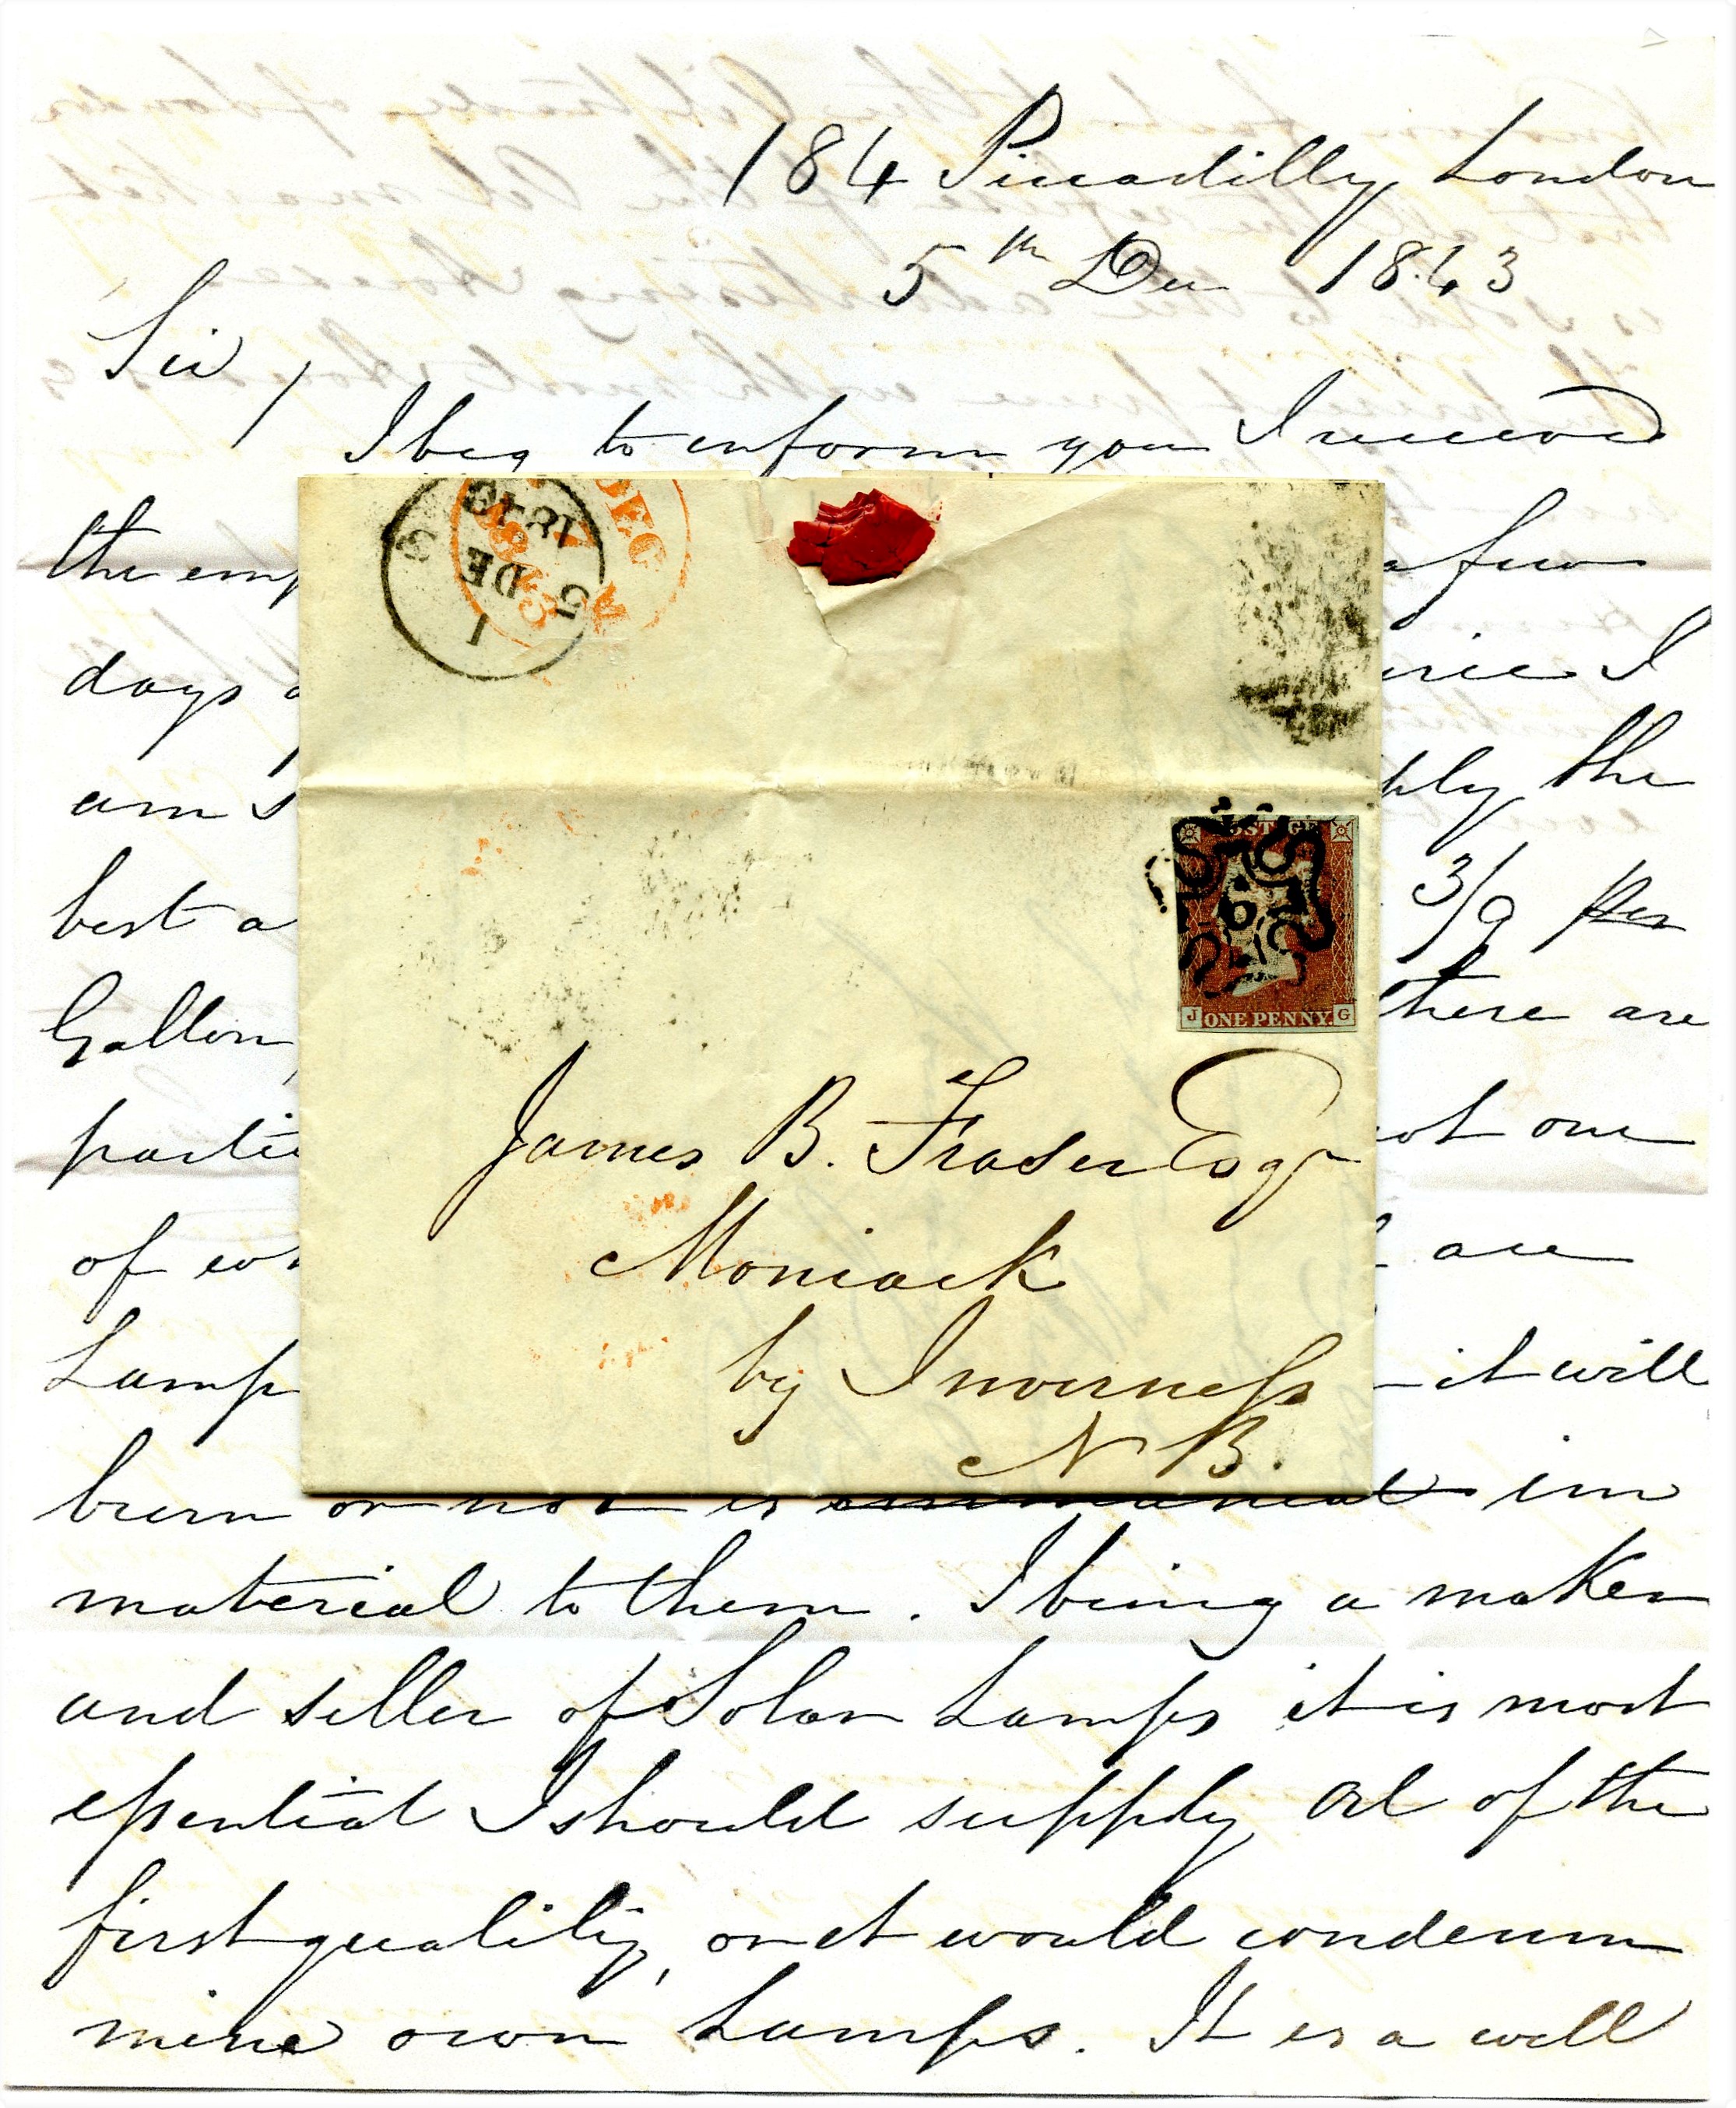 184 Piccadilly London
5th Dec 1843
Sir,
I beg to inform you I received
the emp
a few
days a
I
am s
ply the
best a
3/9 per
Gallon,
there are
partie
not one
of wh
are
Lamp
it will
burn or not is im
material to them. I being a maker
and seller of Solar Lamps it is most
essential I should supply Oil of the
first quality, or it would condemn
mine own Lamps. It is a well
DEC
1843
5 DE
1
3
POSTAGE
6
J ONE PENNY. G
James B. Fraser Esqr
Moniack
by Inverness
N B.